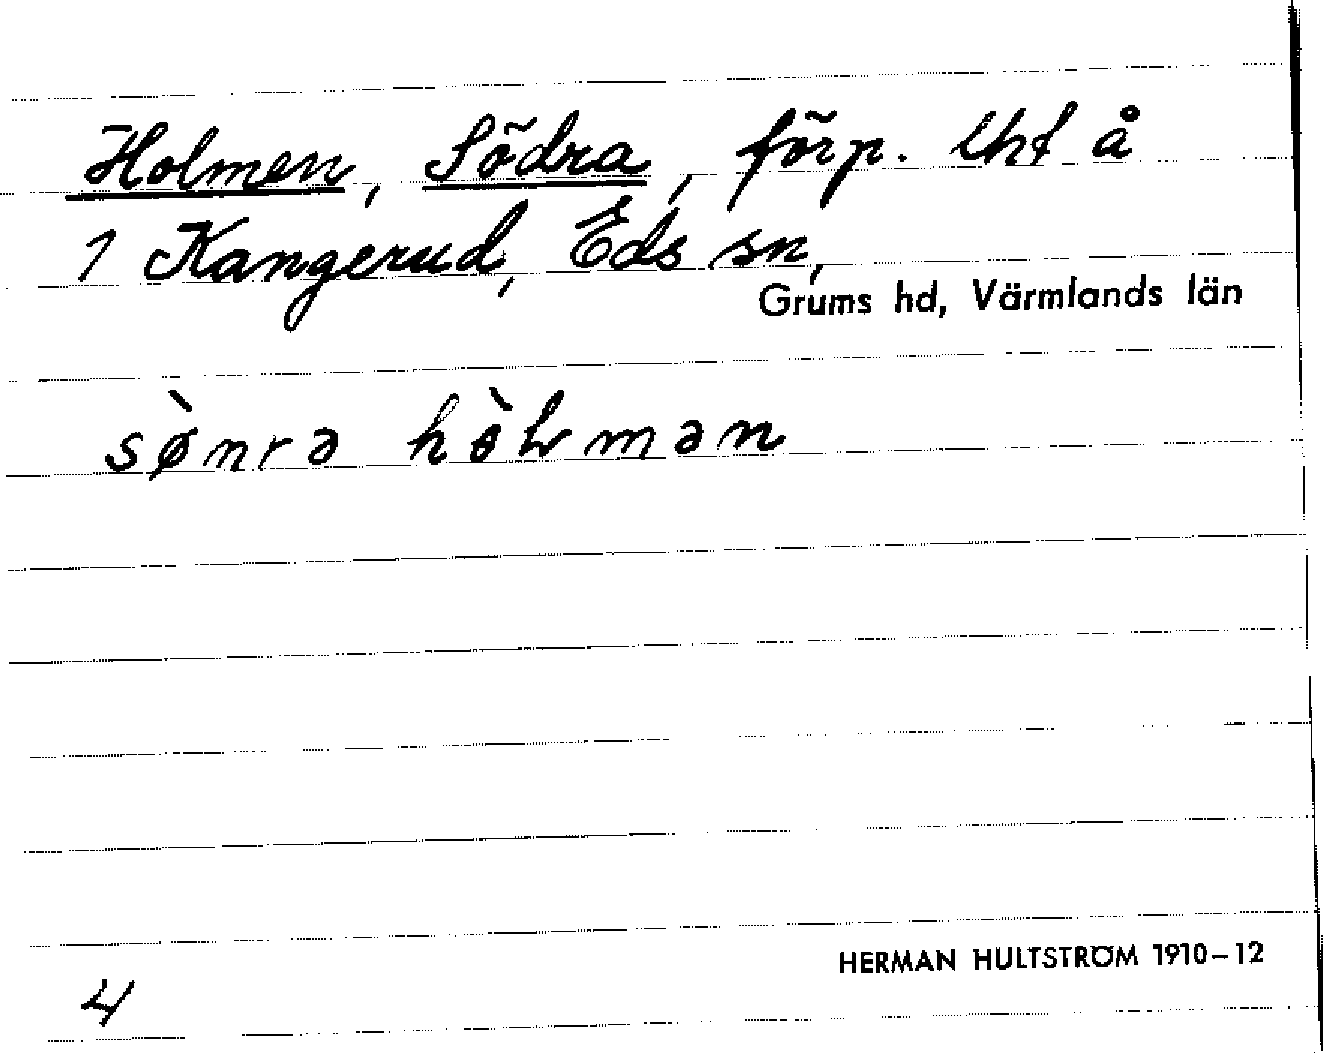 Holmen, Södra, förp. lht å
1 Kangerud, Eds sn,
Grums hd, Värmlands län
sø̀nrə
HERMAN HULTSTRÖM 1910–12
4